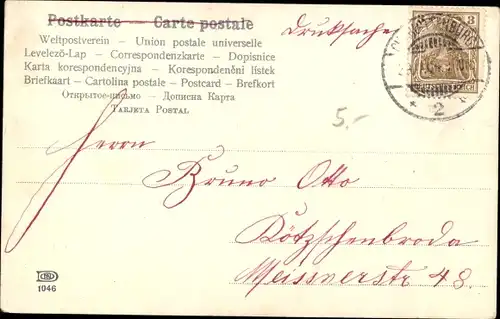 Postkarte — Carte postale
Weltpostverein - Union postale universelle
Levelező-Lap - Correspondenzkarte - Dopisnice
Karta korespondencyjna - Korespondenční listek
Briefkaart - Cartolina postale - Postcard - Brefkort
Открытое письмо - Дописна Карта
TARJETA POSTAL
Drucksache
3
2
5.-
Herrn
Bruno Otto
Kötzschenbroda
Meissnerstr 48.
1046